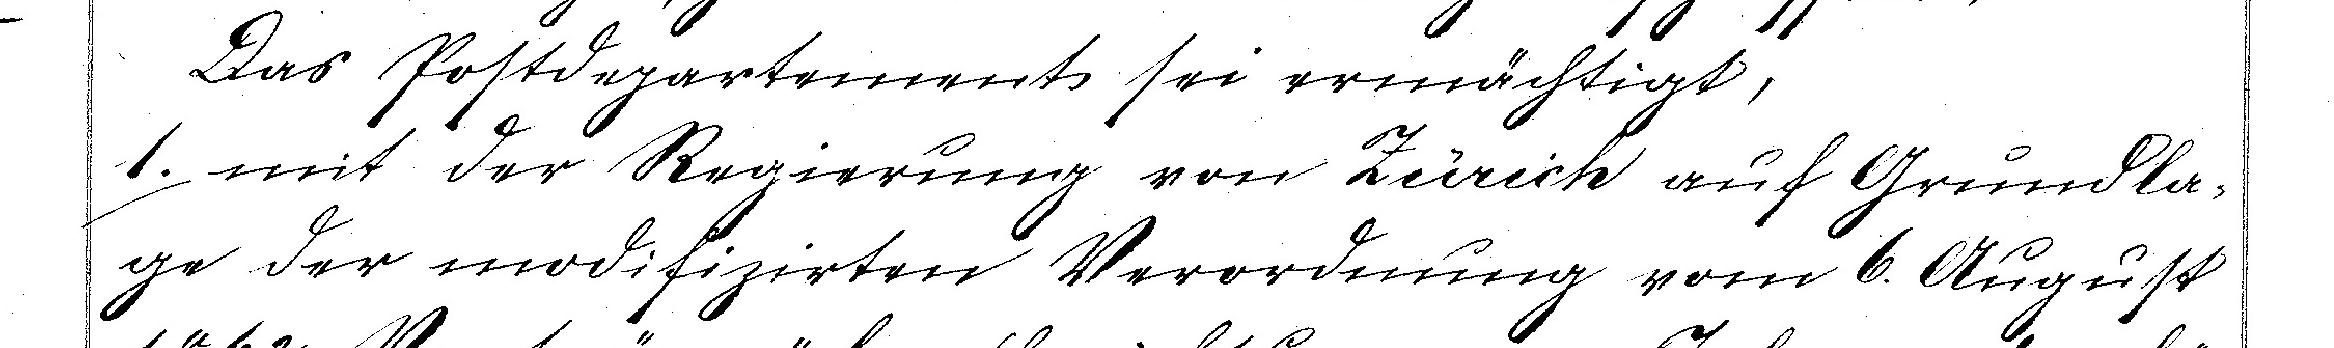 Das Postdepartement sei ermächtigt,
1. mit der Regierung von Zürich auf Grundla-
ge der modifizirten Verordnung vom 6. August